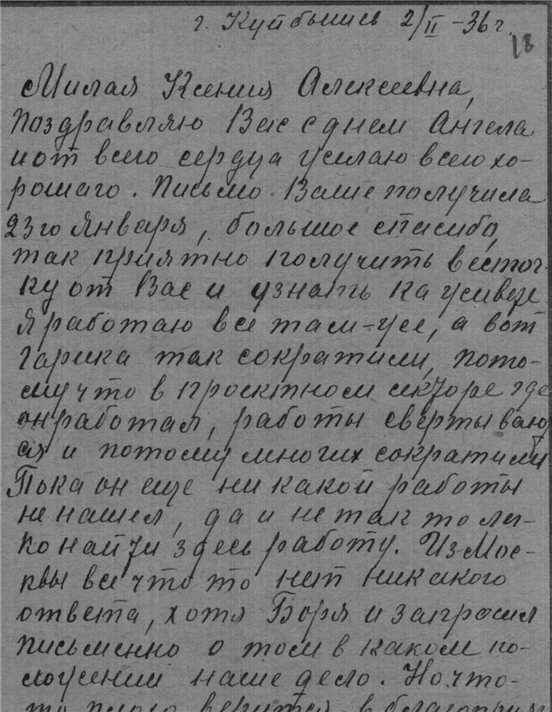 г. Куйбышев 2/II –36 г.
18
Милая Ксения Алексеевна,
поздравляю Вас с днем Ангела
и от всего сердца желаю всего хо-
рошаго. Письмо Ваше получила
23го Января, большое спасибо,
так приятно получить весточ-
ку от Вас и узнать как живете
Я работаю все там-же, а вот
Гарика так сократили, пото-
му что в проектном секторе где
он работал, работы свертываю
ся и потому многих сократили
Пока он еще никакой работы
не нашел, да и не так то лег-
ко найти здесь работу. Из Мос-
квы все что то нет никакого
ответа, хотя Боря и запросил
письменно о том в каком по-
ложении наше дело. Но что-
то плохо верится в